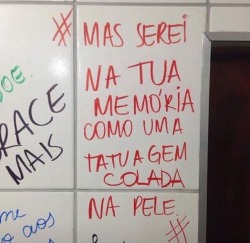 # MAS SEREI
NA TUA
MEMÓRIA
COMO UMA
TATUAGEM
COLADA
NA PELE. #
DOE
RACE
MAIS
me
aos